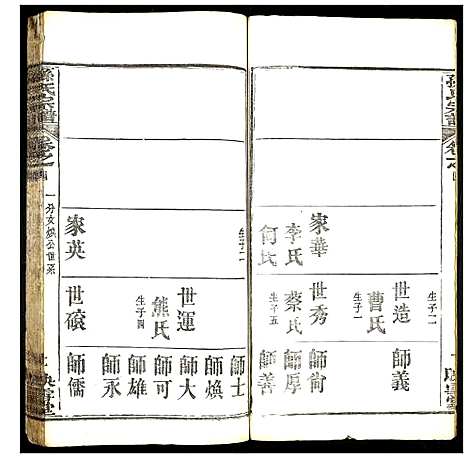 孫氏宗譜
卷之四
家華
李氏
何氏
生子二
世造
生子一
曹氏
生子一
世秀
蔡氏
生子五
師義
師尙
師厚
師善
家英
世運
熊氏
生子四
世磙
師士
師煥
師大
師可
師雄
師永
師儒
孫氏宗譜
卷之四
一分文煥公世系
映雪堂